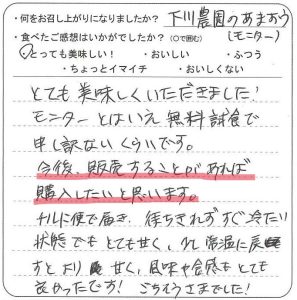 ・何をお召し上がりになりましたか？ 下川農園のあまおう
・食べたご感想はいかがでしたか？（○で囲む） （モニター）
・とっても美味しい！ ・おいしい ・ふつう
・ちょっとイマイチ ・おいしくない
とても美味しくいただきました！
モニターとはいえ無料試食で
申し訳ないくらいです。
今後、販売することがあれば
購入したいと思います。
チルド便で届き、待ちきれずすぐ冷たい
状態でもとても甘く、少し常温に戻
すとより甘く、風味や食感もとても
良かったです！ごちそうさまでした！